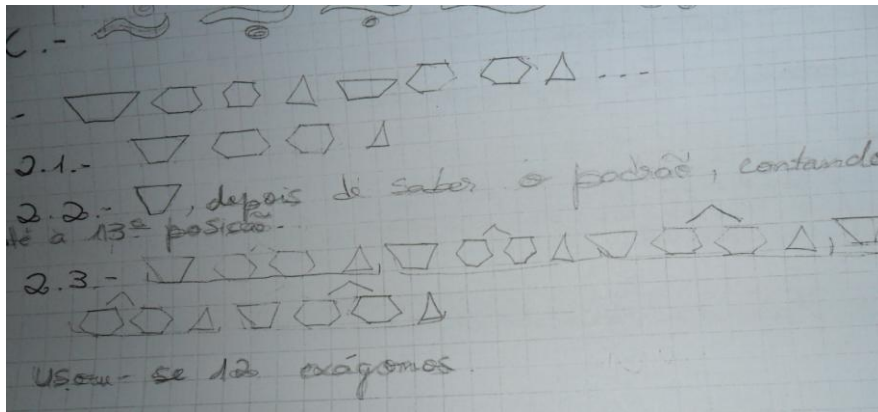 C.-
-
...
2.1.-
2.2.- , depois de saber o padrão, contando
té a 13ª posição.
2.3.- , ,
usou-se 12 exágomos.